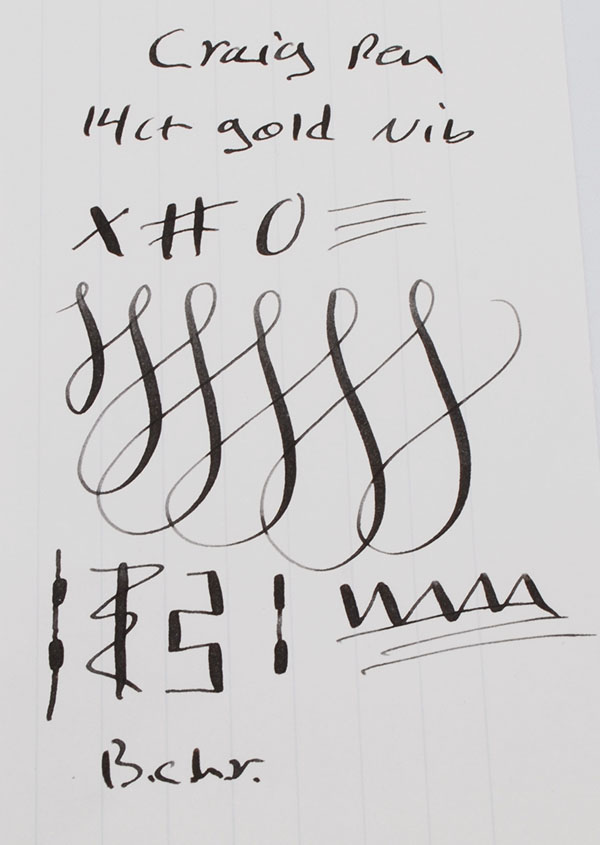 Craig Pen
14ct gold Nib
X # O
B.chr.